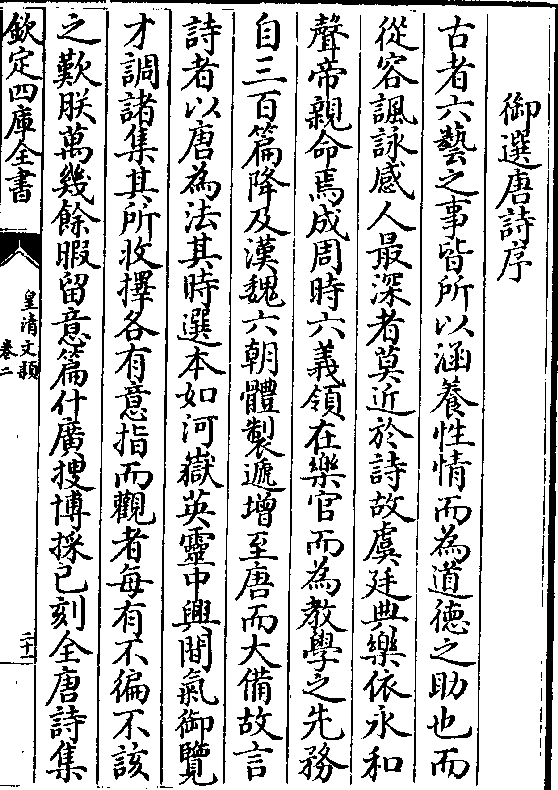 御選唐詩序
古者六藝之事皆所以涵養性情而為道德之助也而
從容諷詠感人最深者莫近於詩故虞廷典樂依永和
聲帝親命焉成周時六義領在樂官而為教學之先務
自三百篇降及漢魏六朝體製遞增至唐而大備故言
詩者以唐為法其時選本如河嶽英靈中興間氣御覽
才調諸集其所收擇各有意指而觀者每有不徧不該
之歎朕萬幾餘暇留意篇什廣搜博採已刻全唐詩集
欽定四庫全書
皇清文穎
卷二
二十一